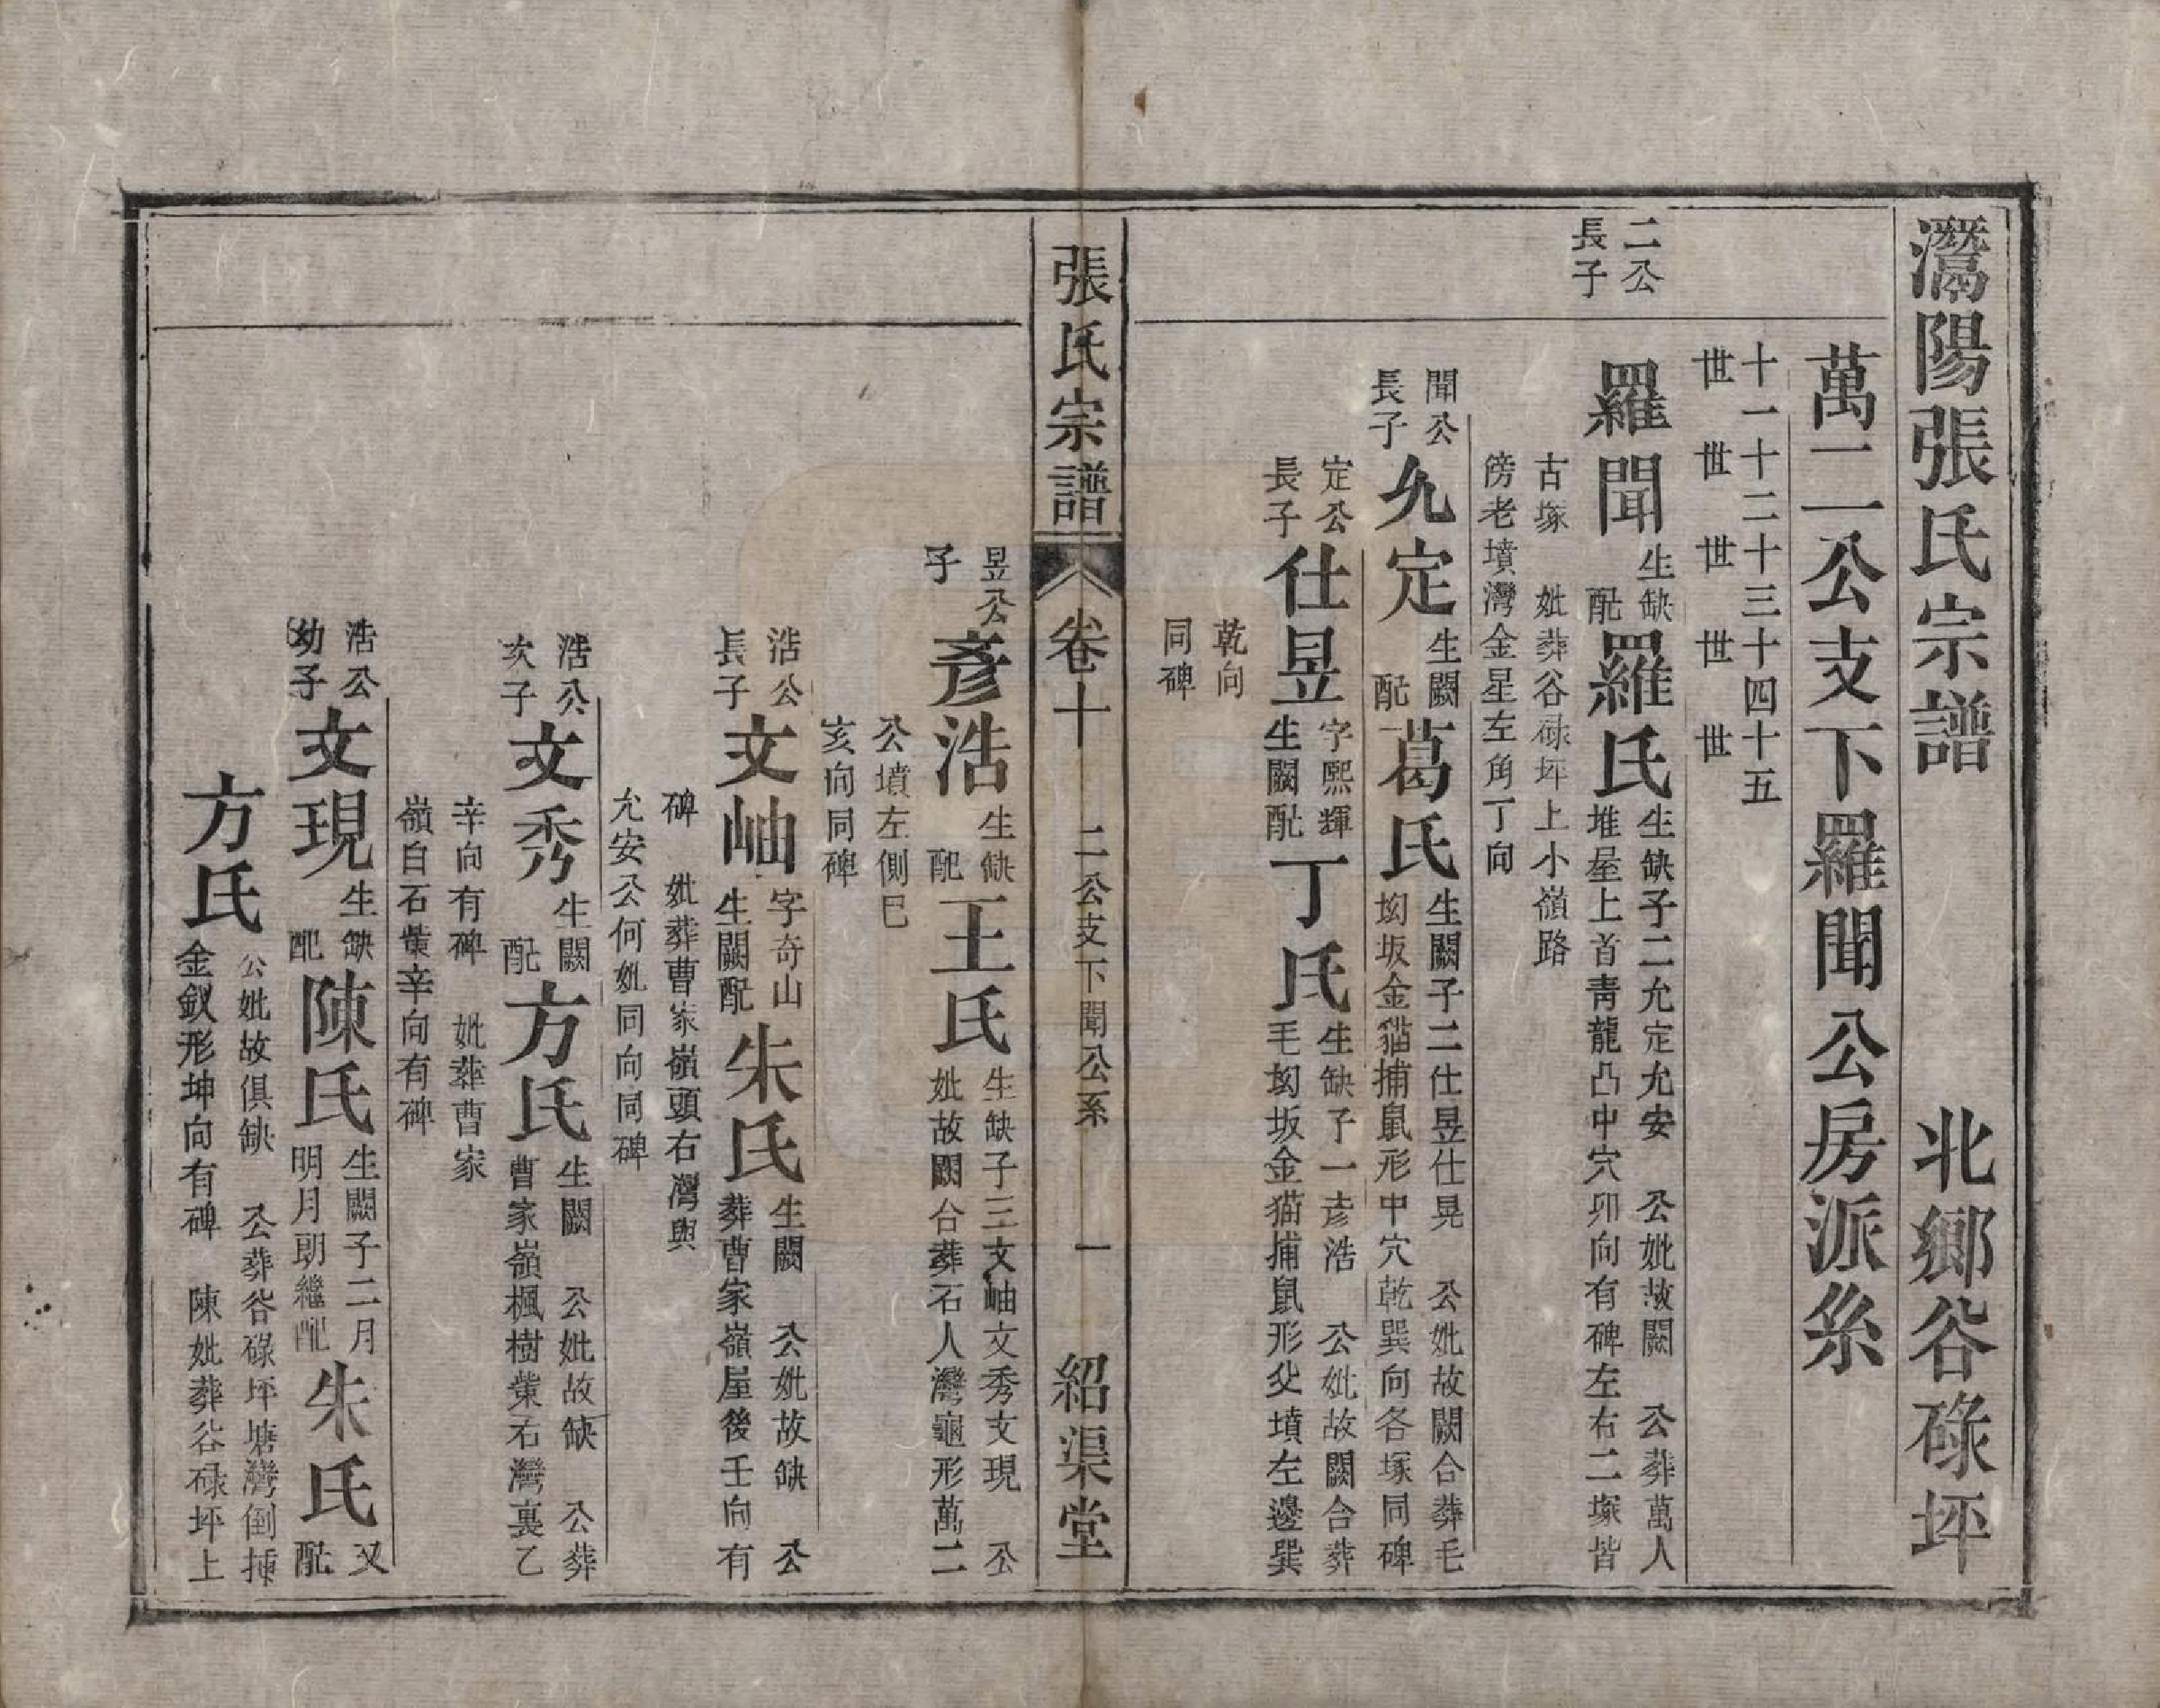 灊陽張氏宗譜　北鄉谷碌坪
萬二公支下羅聞公房派系
十一世 十二世 十三世 十四世 十五世
二公長子
羅聞 生缺 配
羅氏 生缺子二允定允安　公妣故闕　公葬萬人
堆屋上首靑龍凸中穴夘向有碑左右二塚皆
古塚　妣葬谷碌坪上小嶺路
傍老墳灣金星左角丁向
聞公長子
允定 生闕 配
葛氏 生闕子二仕昱仕晃　公妣故闕合葬毛
坳坂金猫捕鼠形中穴乾巽向各塚同碑
定公長子
仕昱 字熙輝 生闕配
丁氏 生缺子一彥浩　公妣故闕合葬
毛坳坂金猫捕鼠形父墳左邊巽
乾向
同碑
張氏宗譜　卷十　二公支下聞公系　一　紹渠堂
昱公子
彥浩 生缺 配
王氏 生缺子三文岫文秀文現　公
妣故闕台葬石人灣龜形萬二
公墳左側巳
亥向同碑
浩公長子
文岫 字奇山 生闕配
朱氏 生闕　公妣故缺　公
葬曹家嶺屋後壬向有
碑　妣葬曹家嶺頭右灣與
允安公何妣同向同碑
浩公次子
文秀 生闕 配
方氏 生闕　公妣故缺　公葬
曹家嶺楓樹棠右灣裏乙
辛向有碑　妣葬曹家
嶺白石棠辛向有碑
浩公幼子
文現 生缺 配
陳氏 生闕子二月
明月朗繼配
朱氏 又配
方氏 公妣故俱缺　公葬谷碌坪塘灣倒揷
金釵形坤向有碑　陳妣葬谷碌坪上